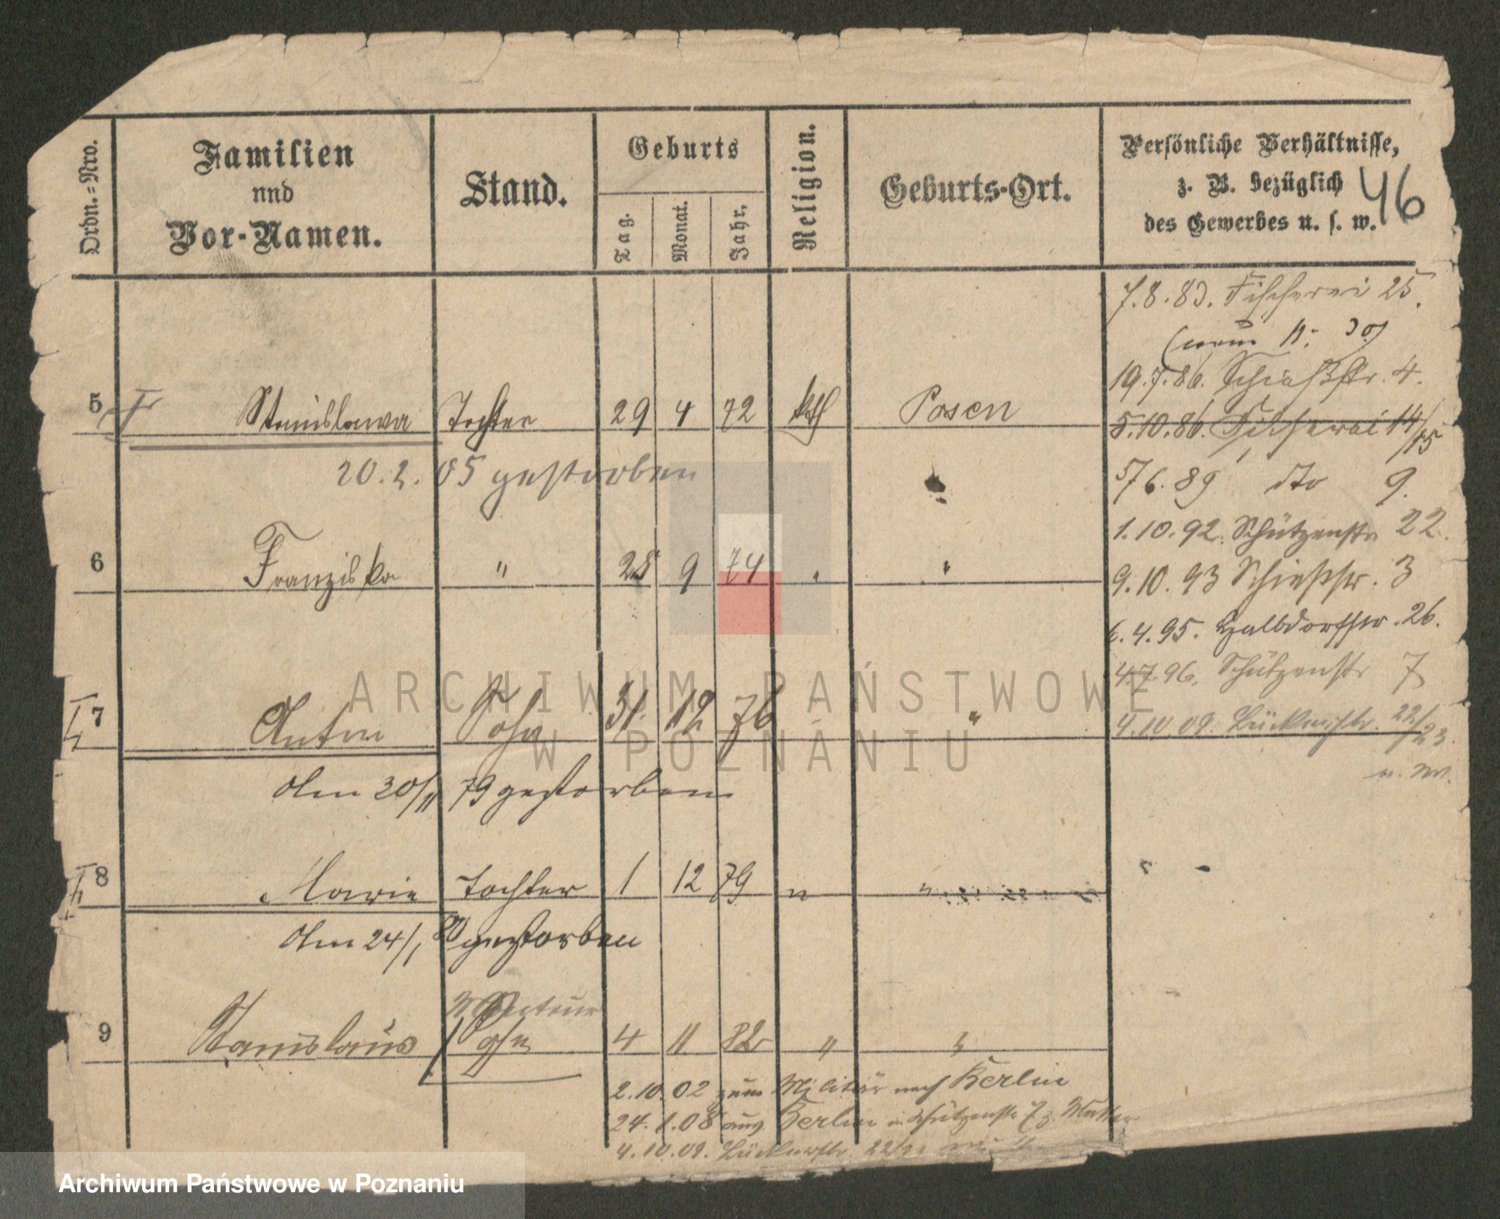 Ordn.=Nro.
Familien
und
Vor-Namen.
Stand.
Geburts
Tag.
Monat.
Jahr.
Religion.
Geburts-Ort.
Persönliche Verhältnisse,
z. B. bezüglich
des Gewerbes u. s. w.
46
7.8.83. Fischerei 25.
19.7.86. Schießstr. 4.
5 Stanislawa Tochter 29 4 72 kath Posen
5.10.86. Fischerei 14/15
20.2.05 gestorben
5/6.89 dto 9.
1.10.92. Schützenstr 22.
6 Franziska " 28 9 74 " "
9.10.93 Schießstr. 3
6.4.95. Halbdorfstr. 26.
4.7.96. Schützenstr 7
7 Anton Sohn 31. 12 76 "
4.10.09. Bäckerstr. 22/23.
Am 30/11 79 gestorben
8 Marie Tochter 1 12 79 " "
Am 24/1 80 gestorben
9 Stanislaus Sohn 4 11 82 " "
2.10.02 zum Militär nach Berlin
24.1.08 aus Berlin Schützenstr 7 z. Mutter
4.10.09. Bäckerstr. 22/23
ARCHIWUM PAŃSTWOWE
W POZNANIU
Archiwum Państwowe w Poznaniu